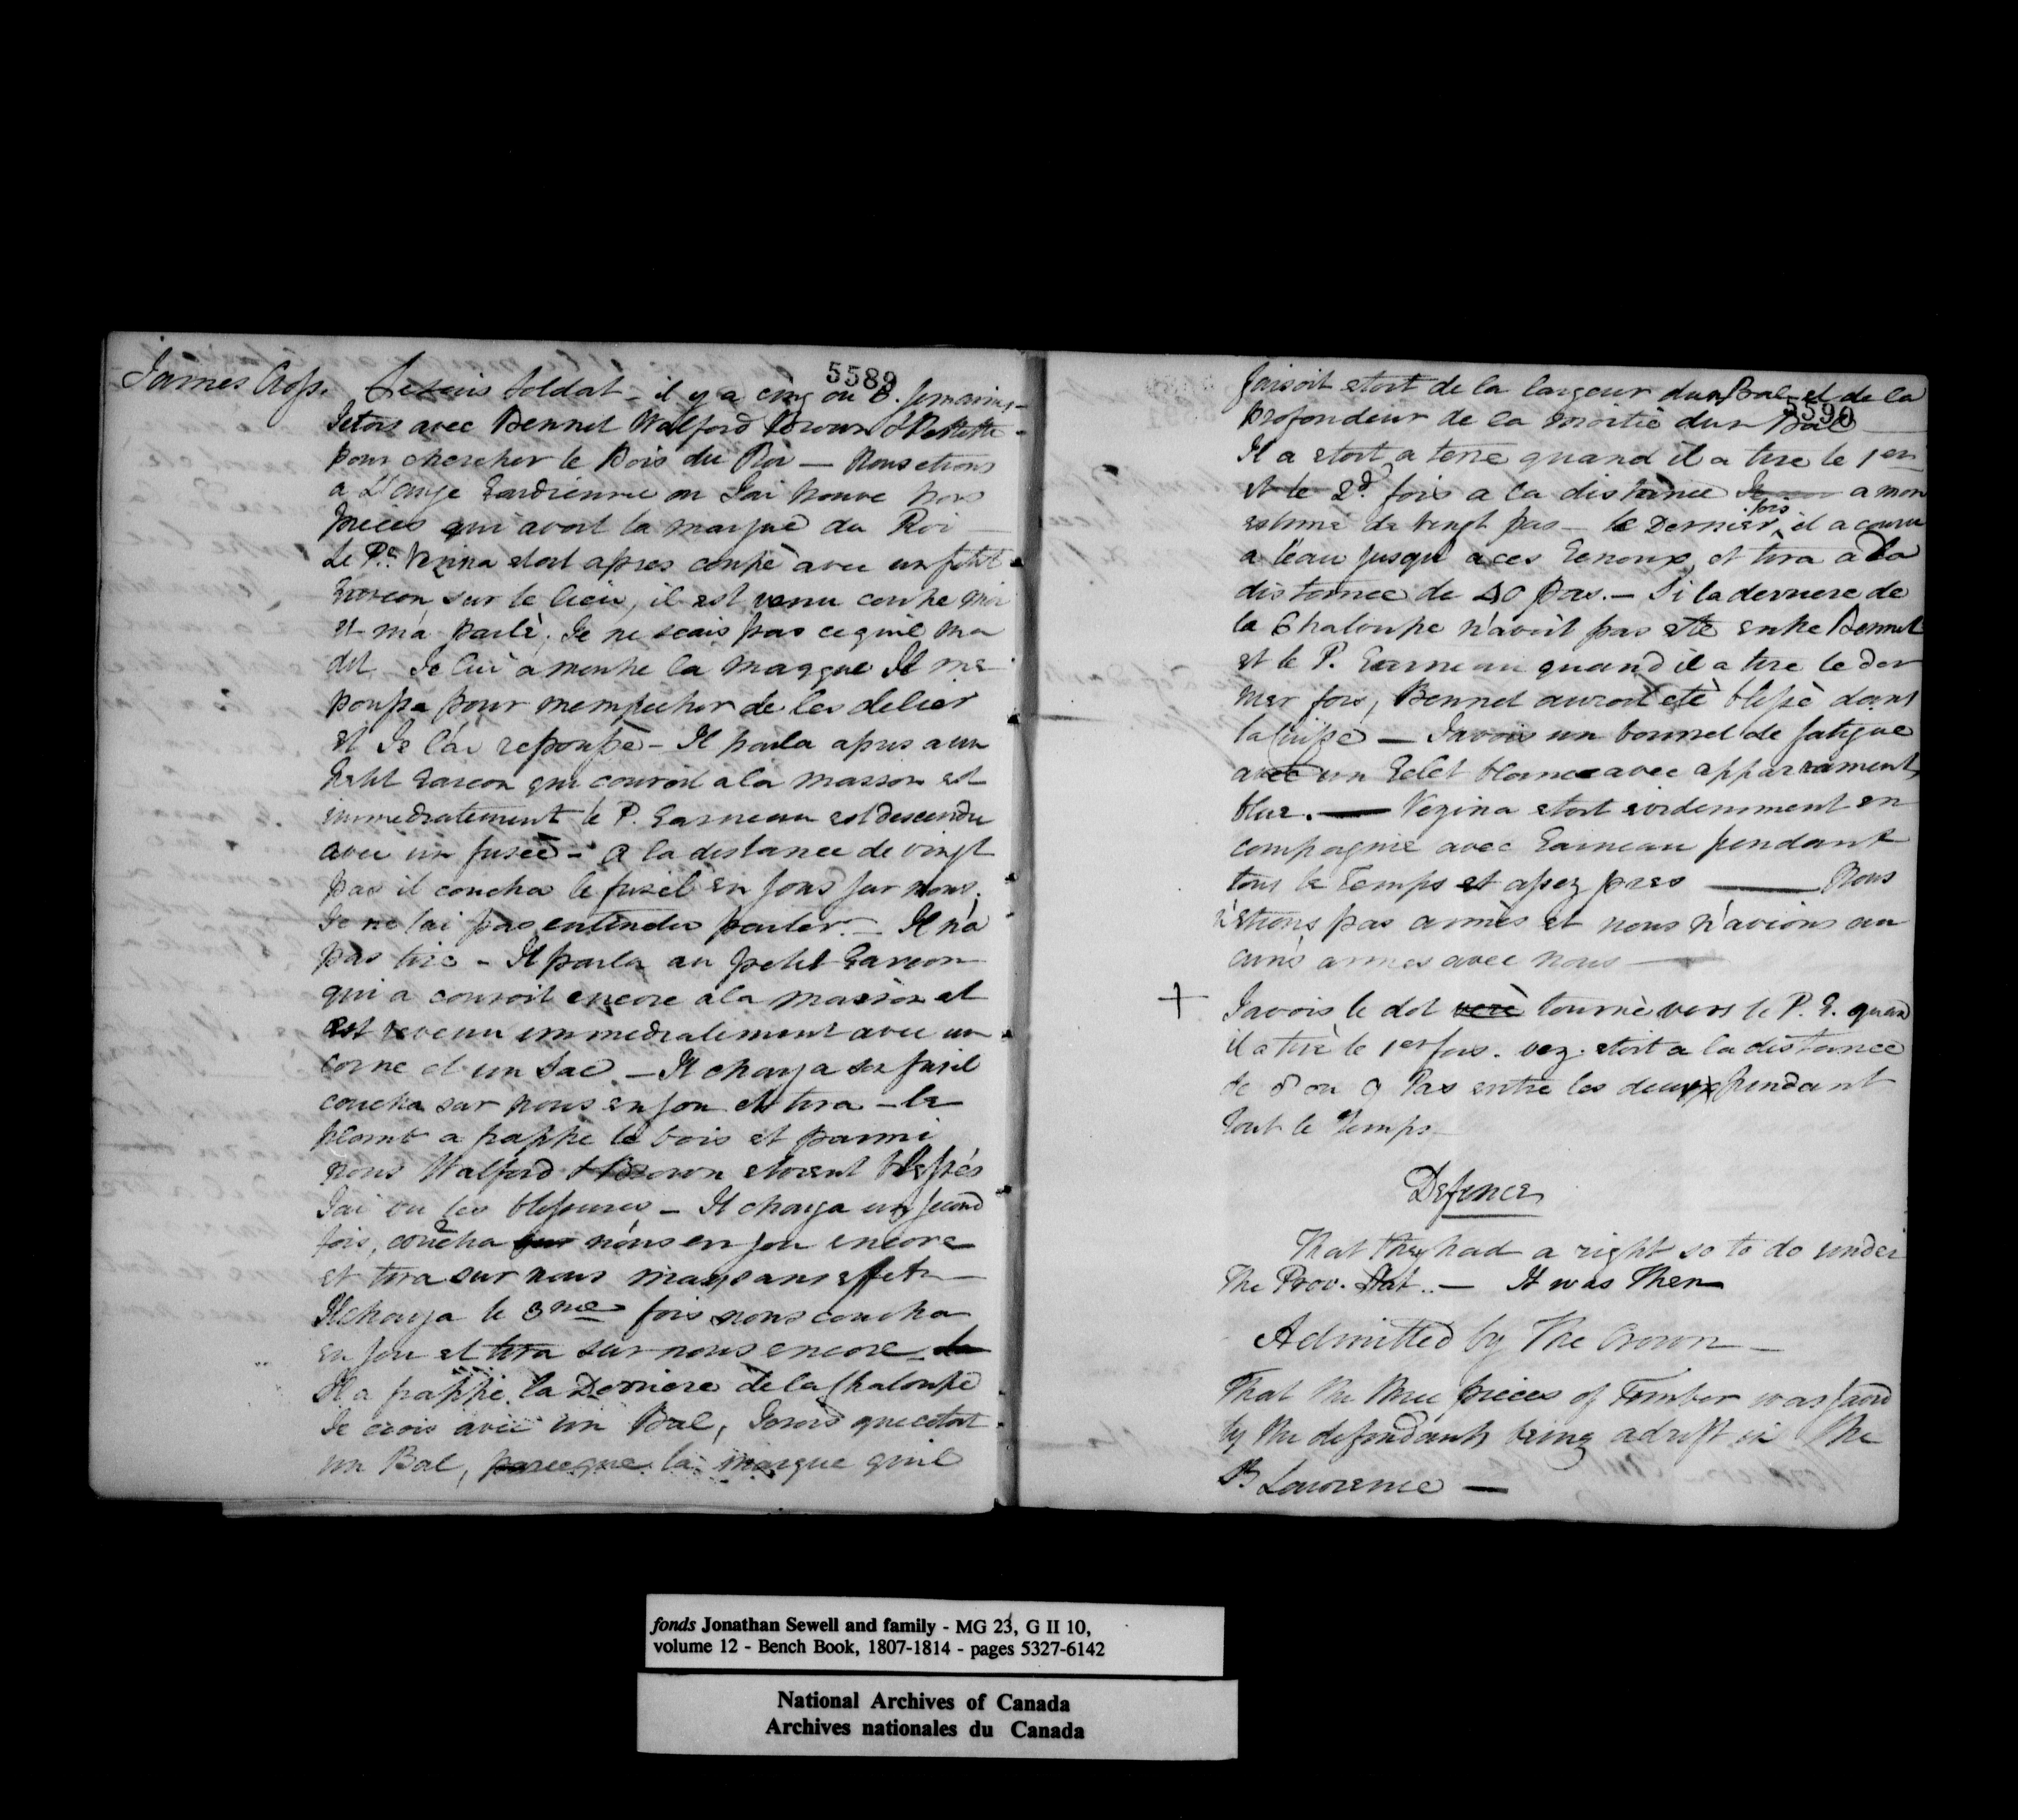 5589
James Cross. Je suis Soldat - il y a cinq ou 6. Semaines -
Jetois avec Bennet Walford Brown &
pour chercher le Bois du Roi — Nous etions
a L'Ange Gardienne ou Jai trouve trois
pieces qui avoit la marque du Roi —
Le Pr. Vezina etoit apres coupè avec un petit
Garcon, sur le lieu, il est venu contre moi
et m'a parlè. Je ne scais pas ce quil ma
dit Je lui a montre la marque Il me
poussa pour mempecher de les delier
et Je l'ai repoussè - Il parla apres a un
petit Garcon qui couroit a la maison et
immediatement le P. Garneau est descendu
avec un fuseè - a la distance de vingt
pas il coucha le fusil en Joue sur nous.
Je ne lai pas entendu parler. - Il n'a
pas tire - Il parla au petit Garcon
qui a couroit encore a la maison et
est revenu immediatement avec un
corne et un Sac. - Il charga son fusil
coucha sur nous en jou et tira - le
plomb a frappe le bois et parmi
nous Walford & Brown etoient blessés
Jai vu les blessures - Il charga un second
fois, coucha sur nous en jou encore
et tira sur nous mais sans effet -
Il charga le 3me fois nous coucha
en jou et tira sur nous encore - la
Il a frappè la Derriere de la Chaloupe
Je crois avec un Bal, Je crois que cetoit
un Bal, parceque la marque quil
5590
faisoit etoit de la largeur dun Bal et de la
profondeur de la moitiè dun Bal —
Il a etoit a terre quand il a tire le 1er
et le 2d. fois a la distance a mon
estime de vingt pas - le Dernier fois il a couru
a l'eau jusqu'a ces Genoux, et tira a la
distance de 40 pas. - Si la derriere de
la Chaloupe n'avoit pas ete entre Bennet
et le P. Garneau quand il a tire le der
nier fois, Bennet auroit etè blessè dans
la cuisse — Javois un bonnet de fatigue
avec un Gelet blance avec apparrament
blue. — Vezina etoit evidemment en
compagnie avec Garneau pendant
tous le temps et assez pres — Nous
n'etions pas armès et nous n'avions au
cuns armes avec nous —
+ Javois le dot verè tournè vers le P. G. quand
il a tirè le 1er fois. Vez. etoit a la distance
de 8 ou 9 Pas entre les deux pendant
tout le Temps -
Defence
That they had a right so to do under
the Prov. Stat. - It was then
Admitted by The Crown —
That the three pieces of Timber was found
by the defendants being adrift in the
St. Lawrence —
fonds Jonathan Sewell and family - MG 23, G II 10,
volume 12 - Bench Book, 1807-1814 - pages 5327-6142
National Archives of Canada
Archives nationales du Canada